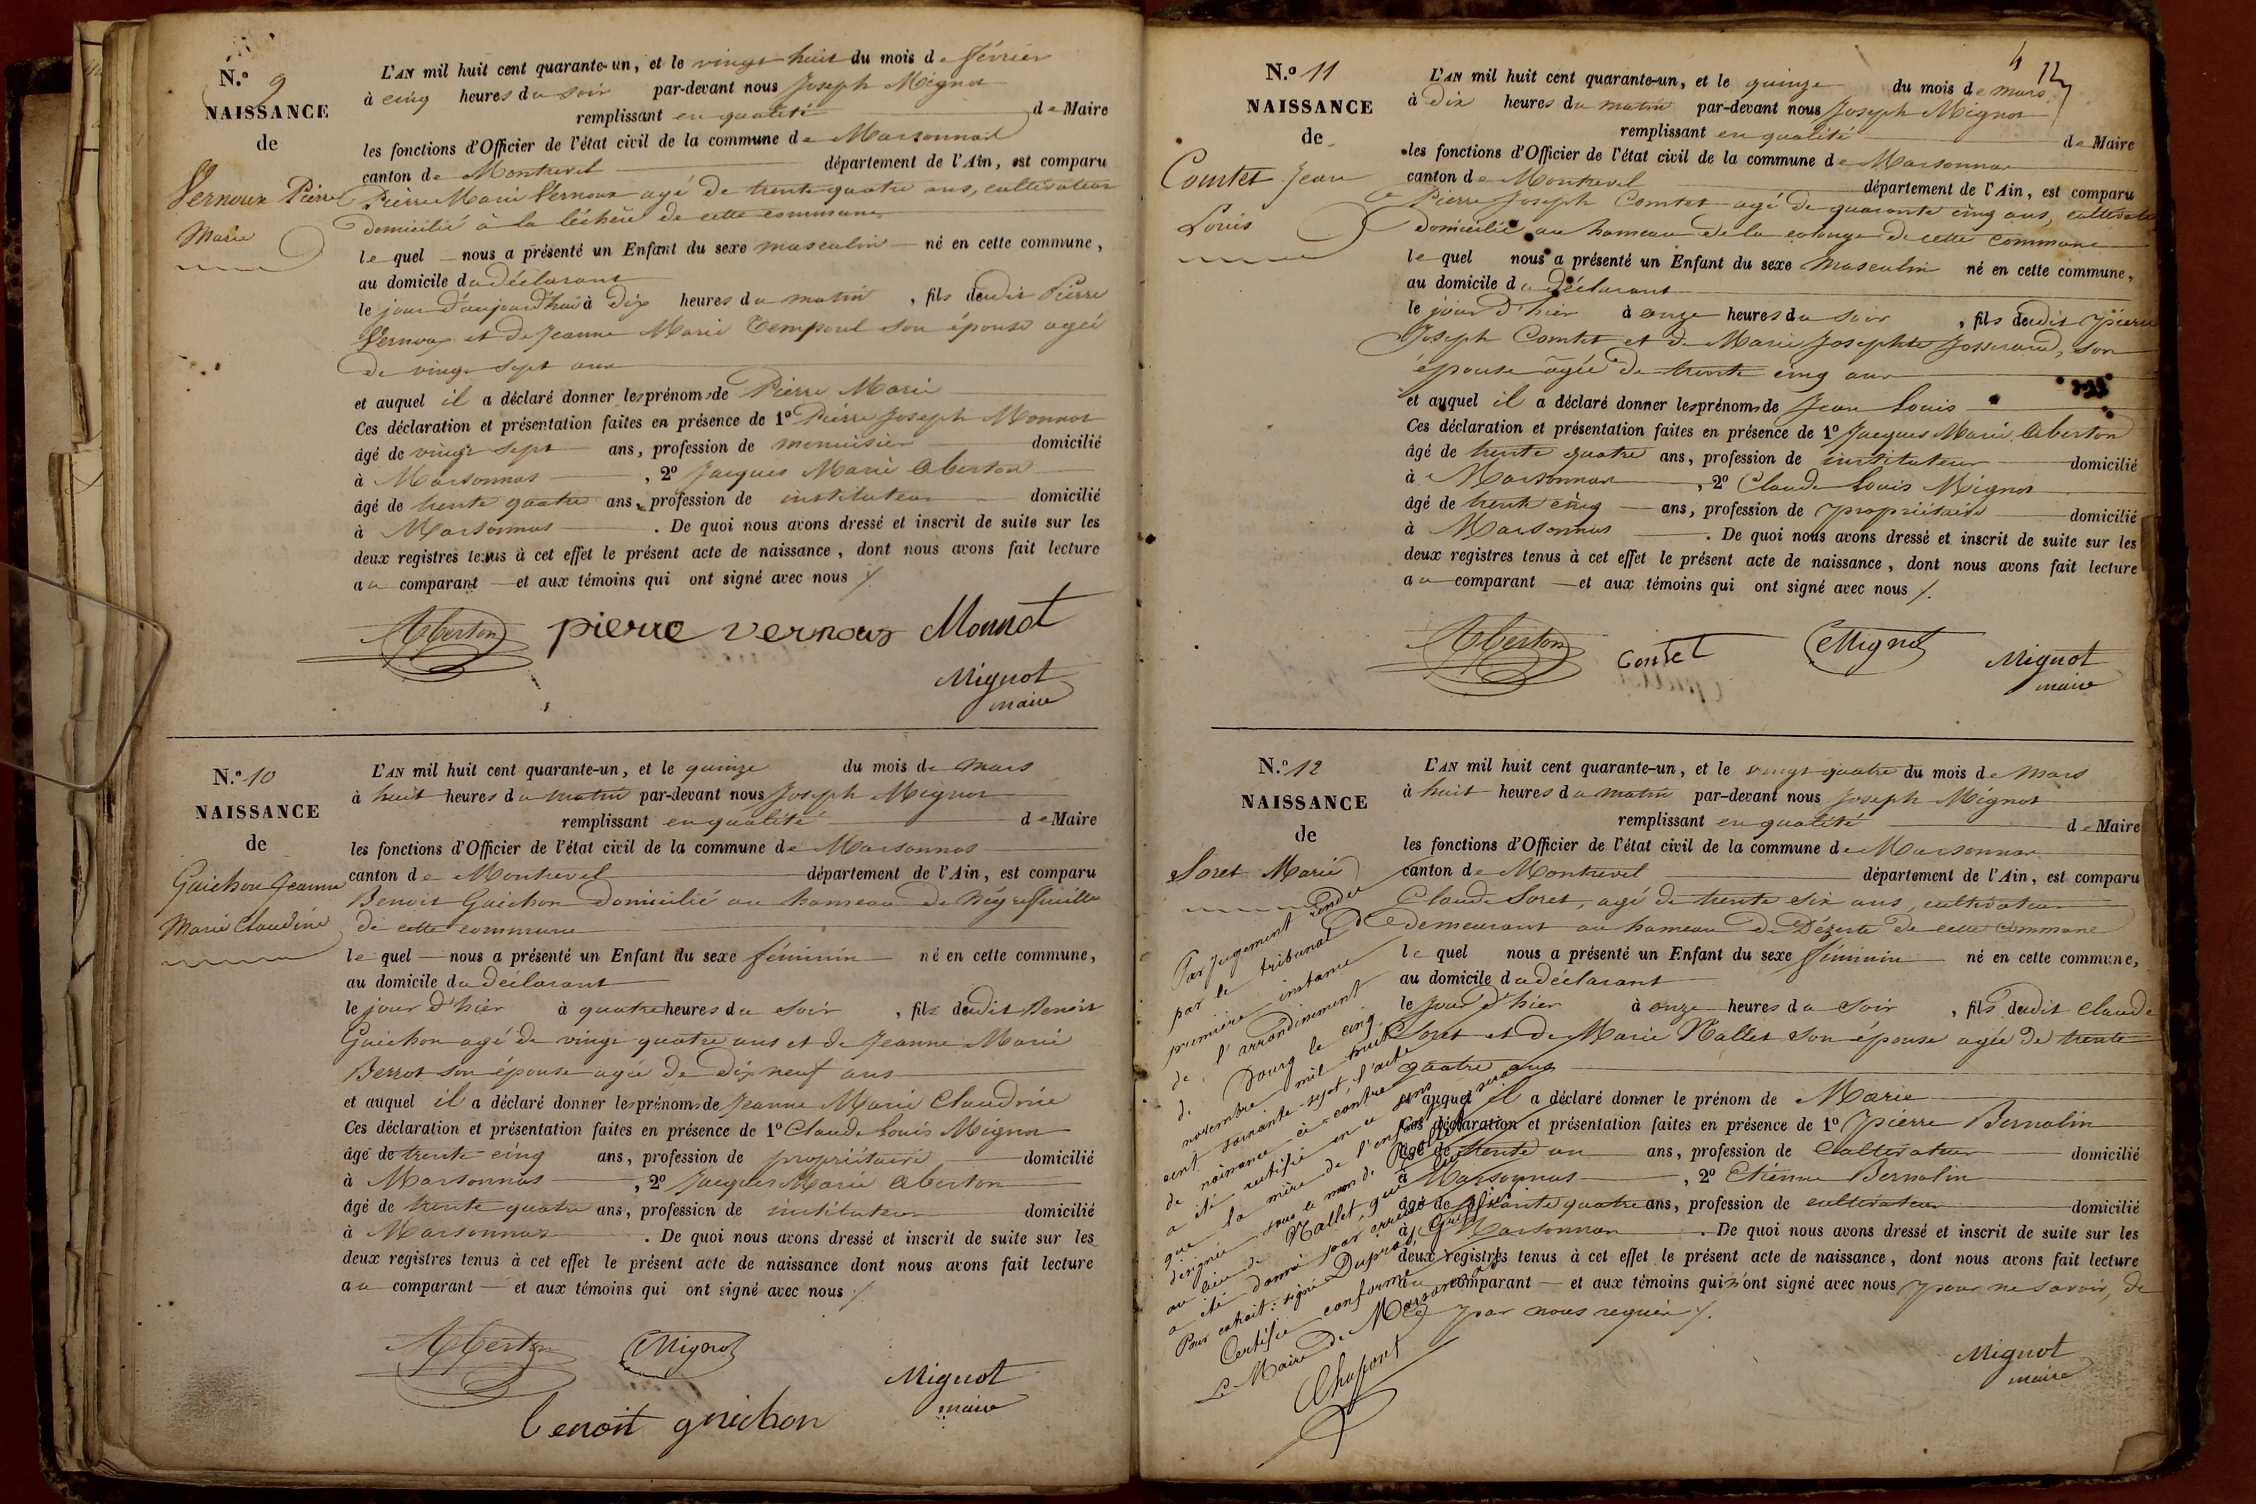 N.º 9
NAISSANCE
de
Vernoux Pierre
Marie
L'AN mil huit cent quarante-un, et le vingt huit du mois de février
à cinq heures du soir par-devant nous Joseph Mignot
remplissant en qualité de Maire
les fonctions d'Officier de l'état civil de la commune de Marsonnas
canton de Montrevel département de l'Ain, est comparu
Pierre Marie Vernoux agé de trente quatre ans, cultivateur
domicilié à la léchère de cette commune
lequel nous a présenté un Enfant du sexe masculin né en cette commune,
au domicile du déclarant
le jour d'aujourd'hui à dix heures du matin, fils dudit Pierre
Vernoux et de Jeanne Marie Temporal son épouse agée
de vingt sept ans
et auquel il a déclaré donner les prénoms de Pierre Marie
Ces déclaration et présentation faites en présence de 1º Pierre Joseph Monnot
âgé de vingt sept ans, profession de menuisier domicilié
à Marsonnas, 2º Jacques Marie Aberton
âgé de trente quatre ans, profession de instituteur domicilié
à Marsonnas. De quoi nous avons dressé et inscrit de suite sur les
deux registres tenus à cet effet le présent acte de naissance, dont nous avons fait lecture
au comparant et aux témoins qui ont signé avec nous
Aberton pierre vernoux Monnot
Mignot
maire
N.º 10
NAISSANCE
de
Guichon Jeanne
Marie Claudine
L'AN mil huit cent quarante-un, et le quinze du mois de mars
à huit heures du matin par-devant nous Joseph Mignot
remplissant en qualité de Maire
les fonctions d'Officier de l'état civil de la commune de Marsonnas
canton de Montrevel département de l'Ain, est comparu
Benoit Guichon domicilié au hameau de Négrefeuille
de cette commune
lequel nous a présenté un Enfant du sexe féminin né en cette commune,
au domicile du déclarant
le jour d'hier à quatre heures du soir, fils dudit Benoit
Guichon agé de vingt quatre ans et de Jeanne Marie
Berrot son épouse agée de dix neuf ans
et auquel il a déclaré donner les prénoms de Jeanne Marie Claudine
Ces déclaration et présentation faites en présence de 1º Claude Louis Mignot
âgé de trente cinq ans, profession de propriétaire domicilié
à Marsonnas, 2º Jacques Marie Aberton
âgé de trente quatre ans, profession de instituteur domicilié
à Marsonnas. De quoi nous avons dressé et inscrit de suite sur les
deux registres tenus à cet effet le présent acte de naissance dont nous avons fait lecture
au comparant et aux témoins qui ont signé avec nous
Aberton CMignot
Mignot
maire
benoit guichon
4 12
N.º 11
NAISSANCE
de
Comtet Jean
Louis
L'AN mil huit cent quarante-un, et le quinze du mois de mars
à dix heures du matin par-devant nous Joseph Mignot
remplissant en qualité de Maire
les fonctions d'Officier de l'état civil de la commune de Marsonnas
canton de Montrevel département de l'Ain, est comparu
Pierre Joseph Comtet agé de quarante cinq ans, cultivateur
domicilié au hameau de la colonge de cette commune
lequel nous a présenté un Enfant du sexe masculin né en cette commune,
au domicile du déclarant
le jour d'hier à onze heures du soir, fils dudit Pierre
Joseph Comtet et de Marie Josephte Josserand, son
épouse agée de trente cinq ans
et auquel il a déclaré donner les prénoms de Jean Louis
Ces déclaration et présentation faites en présence de 1º Jacques Marie Aberton
âgé de trente quatre ans, profession de instituteur domicilié
à Marsonnas, 2º Claude Louis Mignot
âgé de trente cinq ans, profession de propriétaire domicilié
à Marsonnas. De quoi nous avons dressé et inscrit de suite sur les
deux registres tenus à cet effet le présent acte de naissance, dont nous avons fait lecture
au comparant et aux témoins qui ont signé avec nous
Aberton Contet CMignot Mignot
maire
N.º 12
NAISSANCE
de
Soret Marie
L'AN mil huit cent quarante-un, et le vingt quatre du mois de Mars
à huit heures du matin par-devant nous Joseph Mignot
remplissant en qualité de Maire
les fonctions d'Officier de l'état civil de la commune de Marsonnas
canton de Montrevel département de l'Ain, est comparu
Claude Soret, agé de trente six ans, cultivateur
demeurant au hameau de Dézerte de cette commune
lequel nous a présenté un Enfant du sexe féminin né en cette commune,
au domicile du déclarant
le jour d'hier à onze heures du soir, fils dudit Claude
Soret et de Marie Nallet son épouse agée de trente
quatre ans
et auquel il a déclaré donner le prénom de Marie
Ces déclaration et présentation faites en présence de 1º Pierre Bernolin
âgé de trente un ans, profession de Cultivateur domicilié
à Marsonnas, 2º Etienne Bernolin
âgé de quatre ans, profession de cultivateur domicilié
à Marsonnas. De quoi nous avons dressé et inscrit de suite sur les
deux registres tenus à cet effet le présent acte de naissance, dont nous avons fait lecture
au comparant et aux témoins qui n'ont signé avec nous pour ne savoir, de
ce par nous requis
Mignot
maire
Par Jugement rendu
par le tribunal de
première instance
de l'arrondissement
de Bourg le cinq
novembre mil huit
cent soixante-sept, l'acte
de naissance ci-contre
a été rectifié en ce sens
que la mère de l'enfant sera
désignée sous le nom de
au lieu de Nallet, qui lui
a été donné par erreur
Pour extrait: signé Duprat, Greffier
Certifié conforme
Le Maire de Marsonnas
Chapont